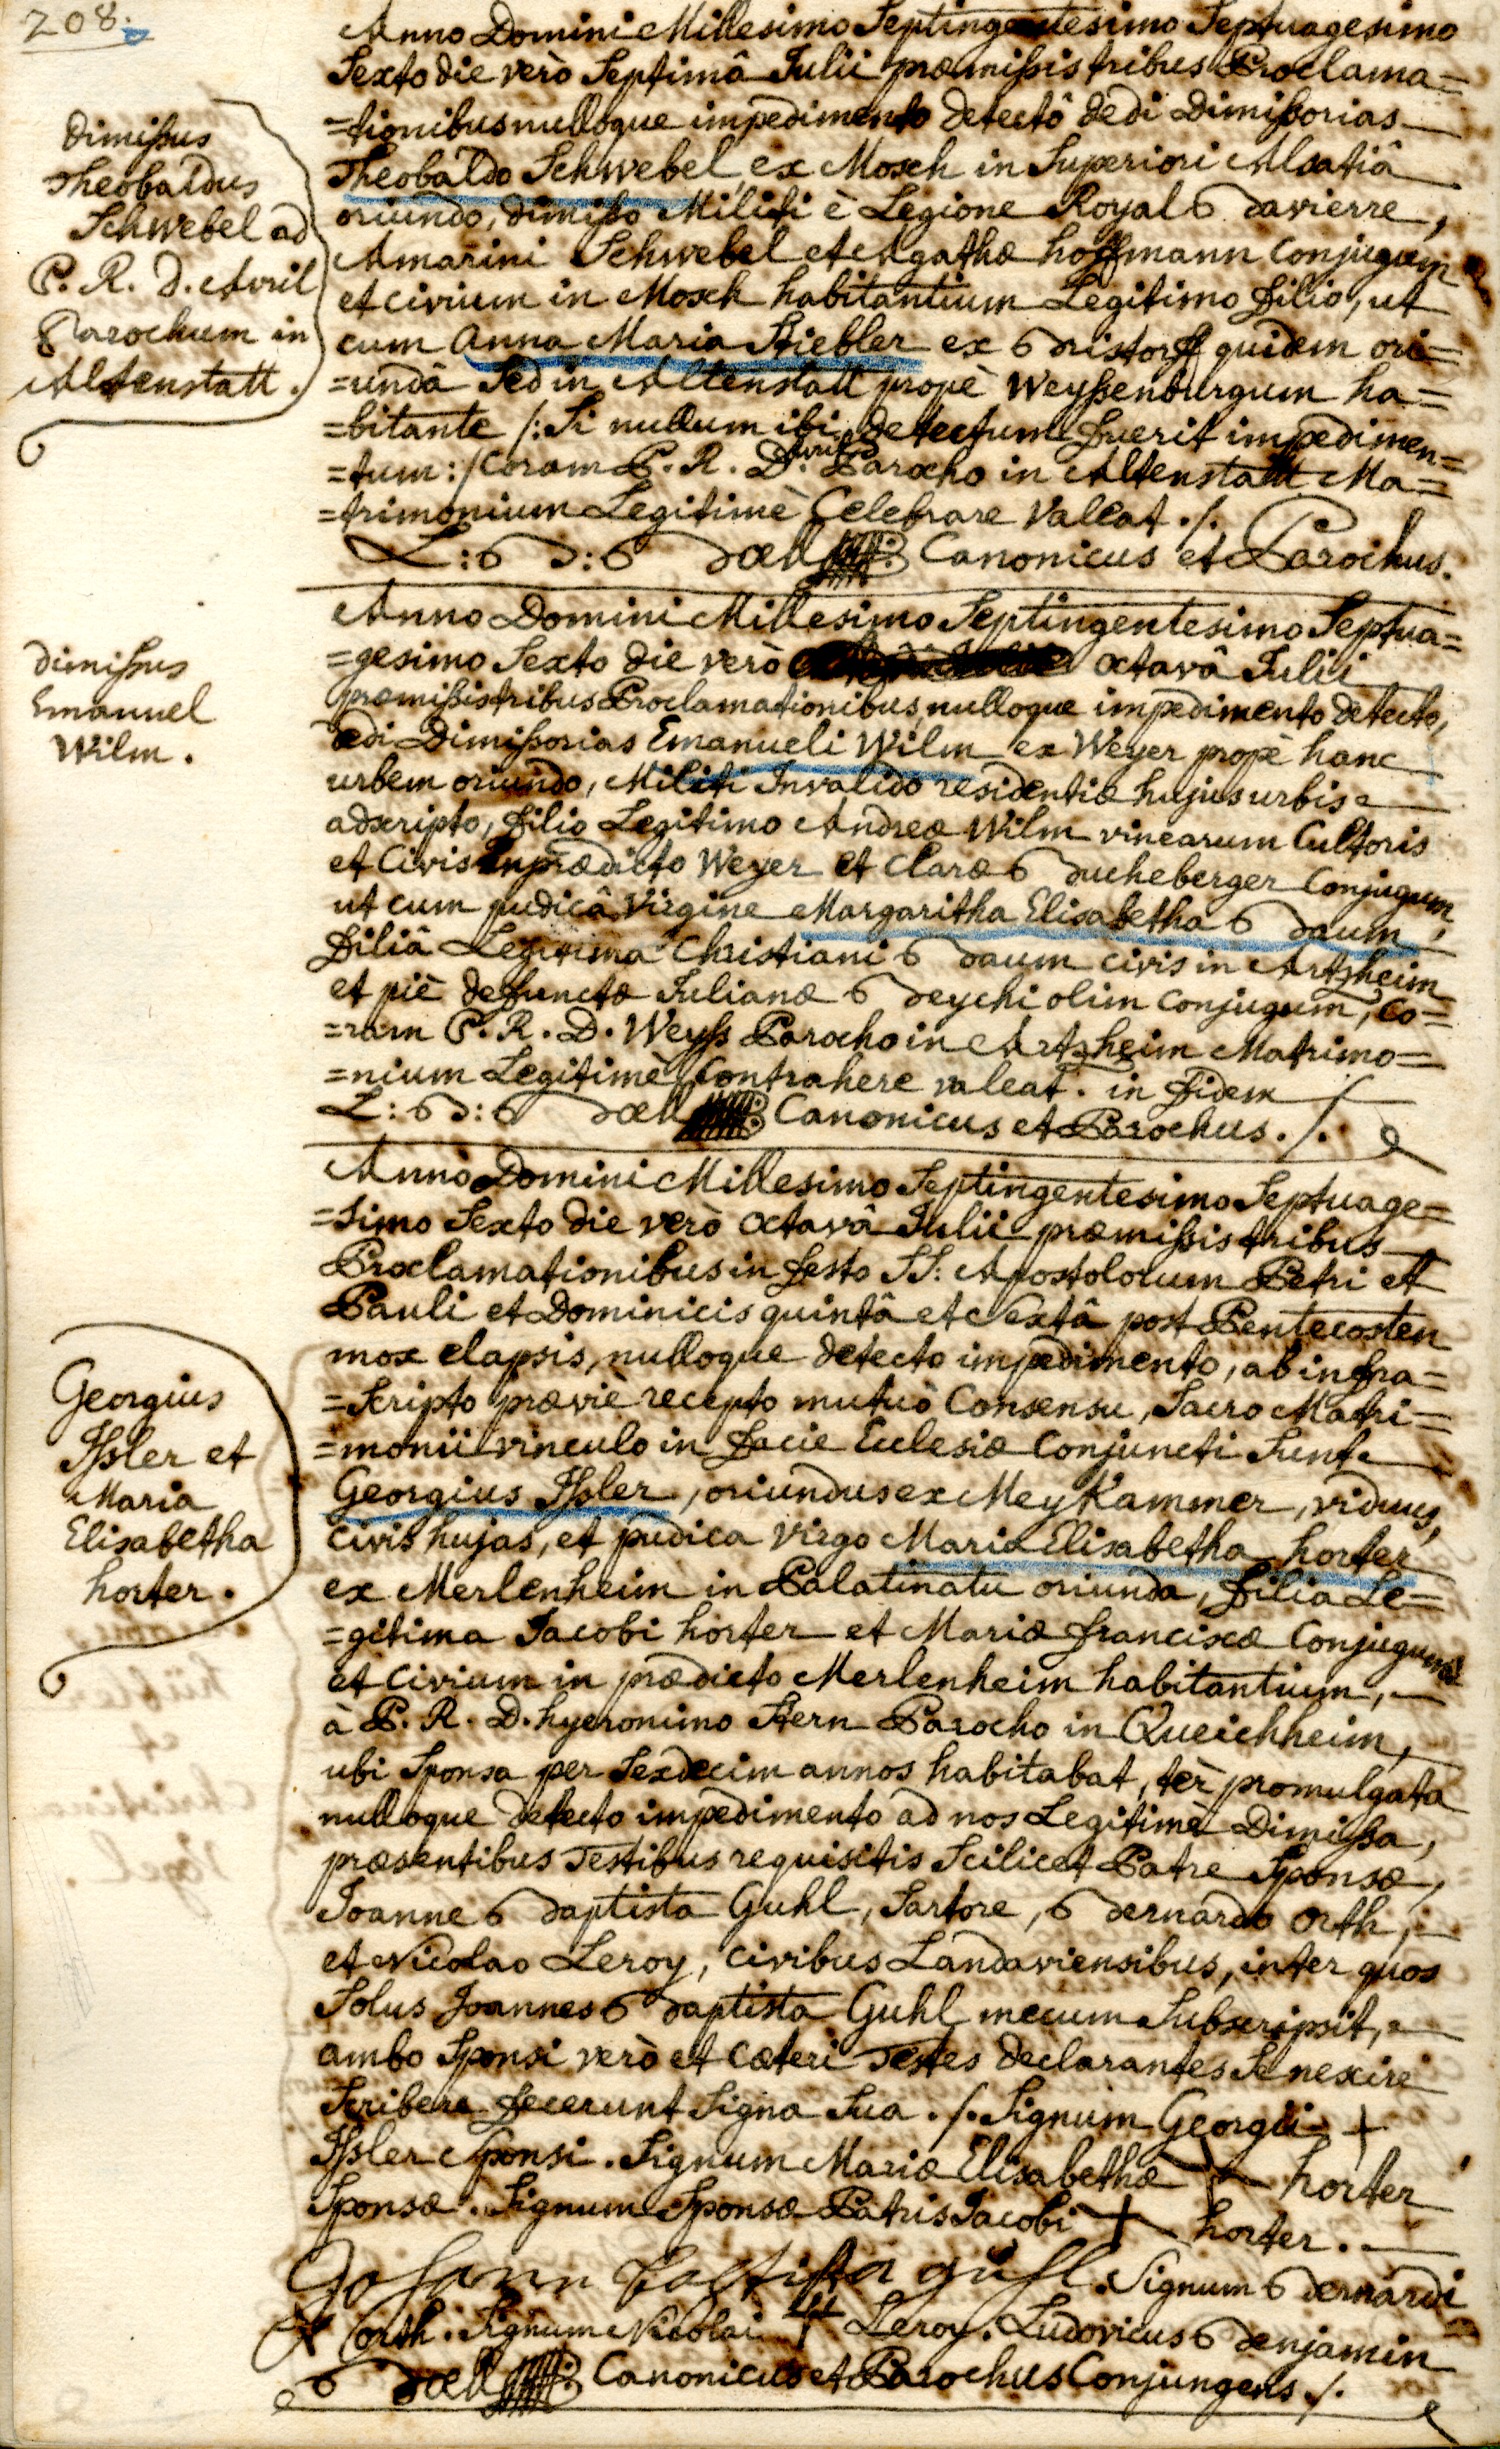 208.
Anno Domini Millesimo Septingentesimo Septuagesimo
Sexto die verò Septimâ Julii præmißis tribus Proclama=
=tionibus nulloque impedimento detectô dedi Dimißorias
Dimißus
Theobaldus
Schwebel ad
P. R. D. Avril
Parochum in
Altenstatt.
Theobaldo Schwebel, ex Mosch in Superiori Alsatiâ
oriundo, dimißo Militi è Legione Royal Bavierre,
Amarini Schwebel et Agathæ hoffmann Conjugum
et civium in Mosch habitantium Legitimo filio, ut
cum Anna Maria Stiebler ex Bristorff quidem ori=
=undâ Sed in Altenstatt propè Weyßenburgum ha=
=bitante /: Si nullum ibi detectum fuerit impedimen=
=tum :/ Coram P. R. D. Avril Parocho in Altenstatt Ma=
=trimonium Legitimè Celebrare Valeat ./.
L: B: Böell Canonicus et Parochus.
Dimißus
Emanuel
Wilm.
Anno Domini Millesimo Septingentesimo Septua=
=gesimo Sexto die verò octavâ Julii
præmißis tribus Proclamationibus, nulloque impedimento detecto,
dedi Dimißorias Emanueli Wilm ex Weyer propè hanc
urbem oriundo, Militi Invalido residentiæ hujus urbis
adscripto, filio Legitimo Andreæ Wilm vinearum Cultoris
et Civis in prædicto Weyer et Claræ Bucheberger Conjugum,
ut cum pudicâ Virgine Margaritha Elisabetha Baum,
filiâ Legitima Christiani Baum civis in Artzheim
et piè defunctæ Julianæ Beychi olim Conjugum, Co=
=ram P. R. D. Weyß Parocho in Artzheim Matrimo=
=nium Legitimè Contrahere valeat. in fidem
L: B: Böell Canonicus et Parochus ./.
Georgius
Ißler et
Maria
Elisabetha
horter.
Anno Domini Millesimo Septingentesimo Septuage=
=simo Sexto die verò octavâ Julii præmißis tribus
Proclamationibus in festo SS: Apostolorum Petri et
Pauli et Dominicis quintâ et Sextâ post Pentecosten
mox elapsis, nulloque detecto impedimento, ab infra=
=Scripto præviè recepto mutuò Consensu, Sacro Matri=
=monii vinculo in facie Ecclesiæ Conjuncti Sunt
Georgius Ißler, oriundus ex MeyKammer, viduus,
civis hujas, et pudica Virgo Maria Elisabetha horter
ex Merlenheim in Palatinatu oriunda, filia Le=
=gitima Jacobi horter et Mariæ franciscæ Conjugum
et Civium in prædicto Merlenheim habitantium,
à P. R. D. hyeronimo Stern Parocho in Queichheim,
ubi Sponsa per Sexdecim annos habitabat, tèr promulgata
nulloque detecto impedimento ad nos Legitimè Dimißa,
præsentibus Testibus requisitis Scilicet Patre Sponsæ,
Joanne Baptista Guhl, Sartore, Bernardo Orth,
et Nicolao Leroy, Civibus Landaviensibus, inter quos
Solus Joannes Baptista Guhl mecum Subscripsit,
ambo Sponsi verò et Cæteri Testes declarantes Se nescire
Scribere fecerunt Signa Sua ./. Signum Georgii +
Ißler Sponsi. Signum Mariæ Elisabethæ + horter
Sponsæ. Signum Sponsæ Patris Jacobi + horter.
Johann Baptista guhl. Signum Bernardi
+ Orth. Signum Nicolai + Leroy. Ludovicus Benjamin
Böell Canonicus et Parochus Conjungens ./.